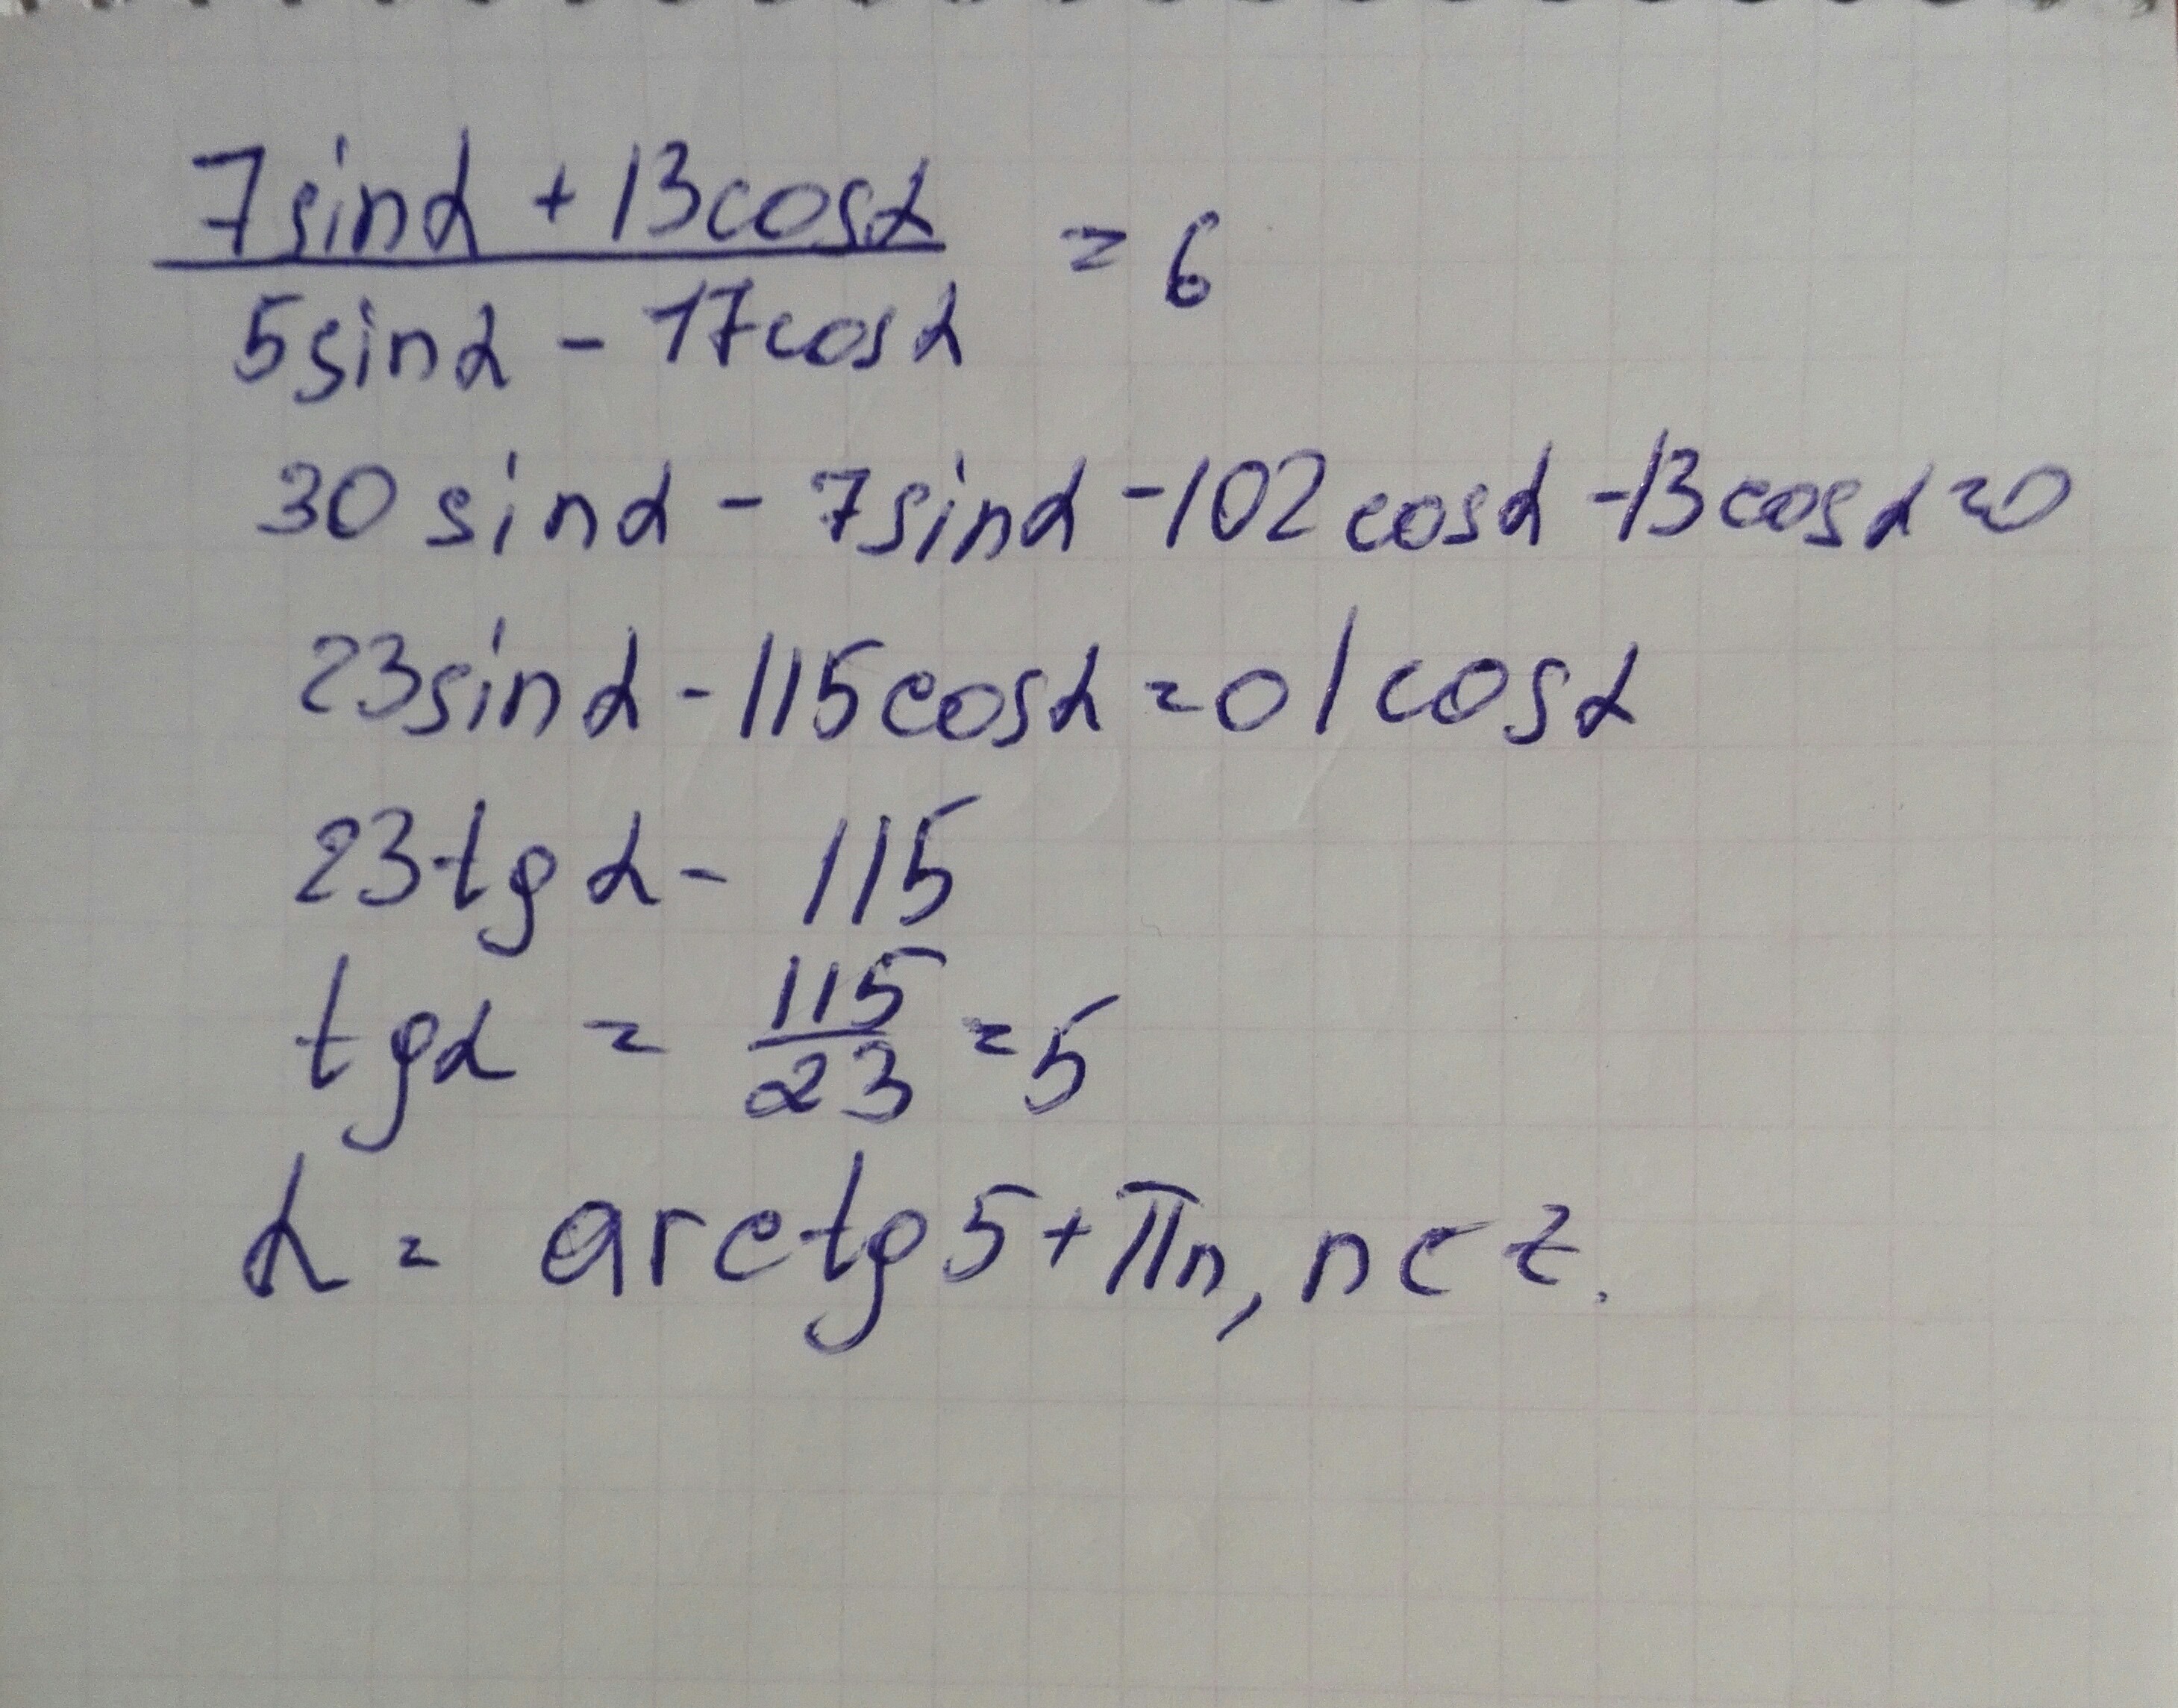 7sinα + 13cosα
5sinα - 17cosα = 6
30 sinα - 7sinα - 102 cosα - 13 cosα = 0
23sinα - 115cosα = 0 | cosα
23tgα - 115
tgα = 115/23 = 5
α = arctg5 + πn, n∈z.